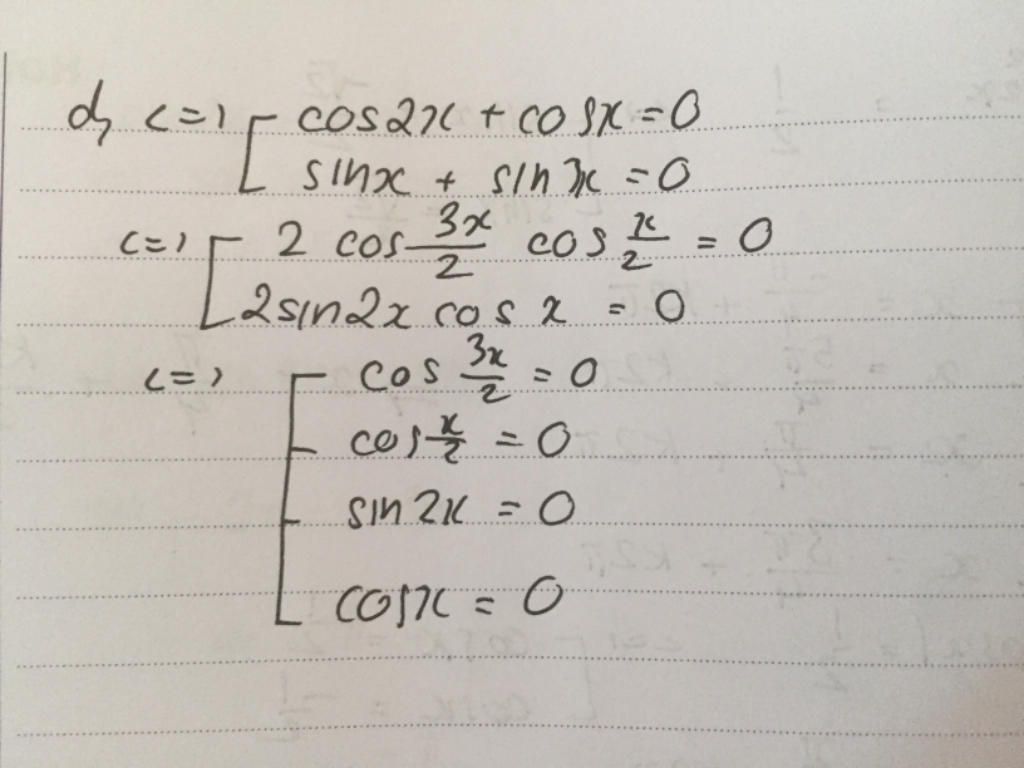 d, <=> [ cos2x + cosx = 0
sinx + sin3x = 0
<=> [ 2 cos 3x/2 cos x/2 = 0
2sin2x cos x = 0
<=> [ cos 3x/2 = 0
cos x/2 = 0
sin2x = 0
cosx = 0